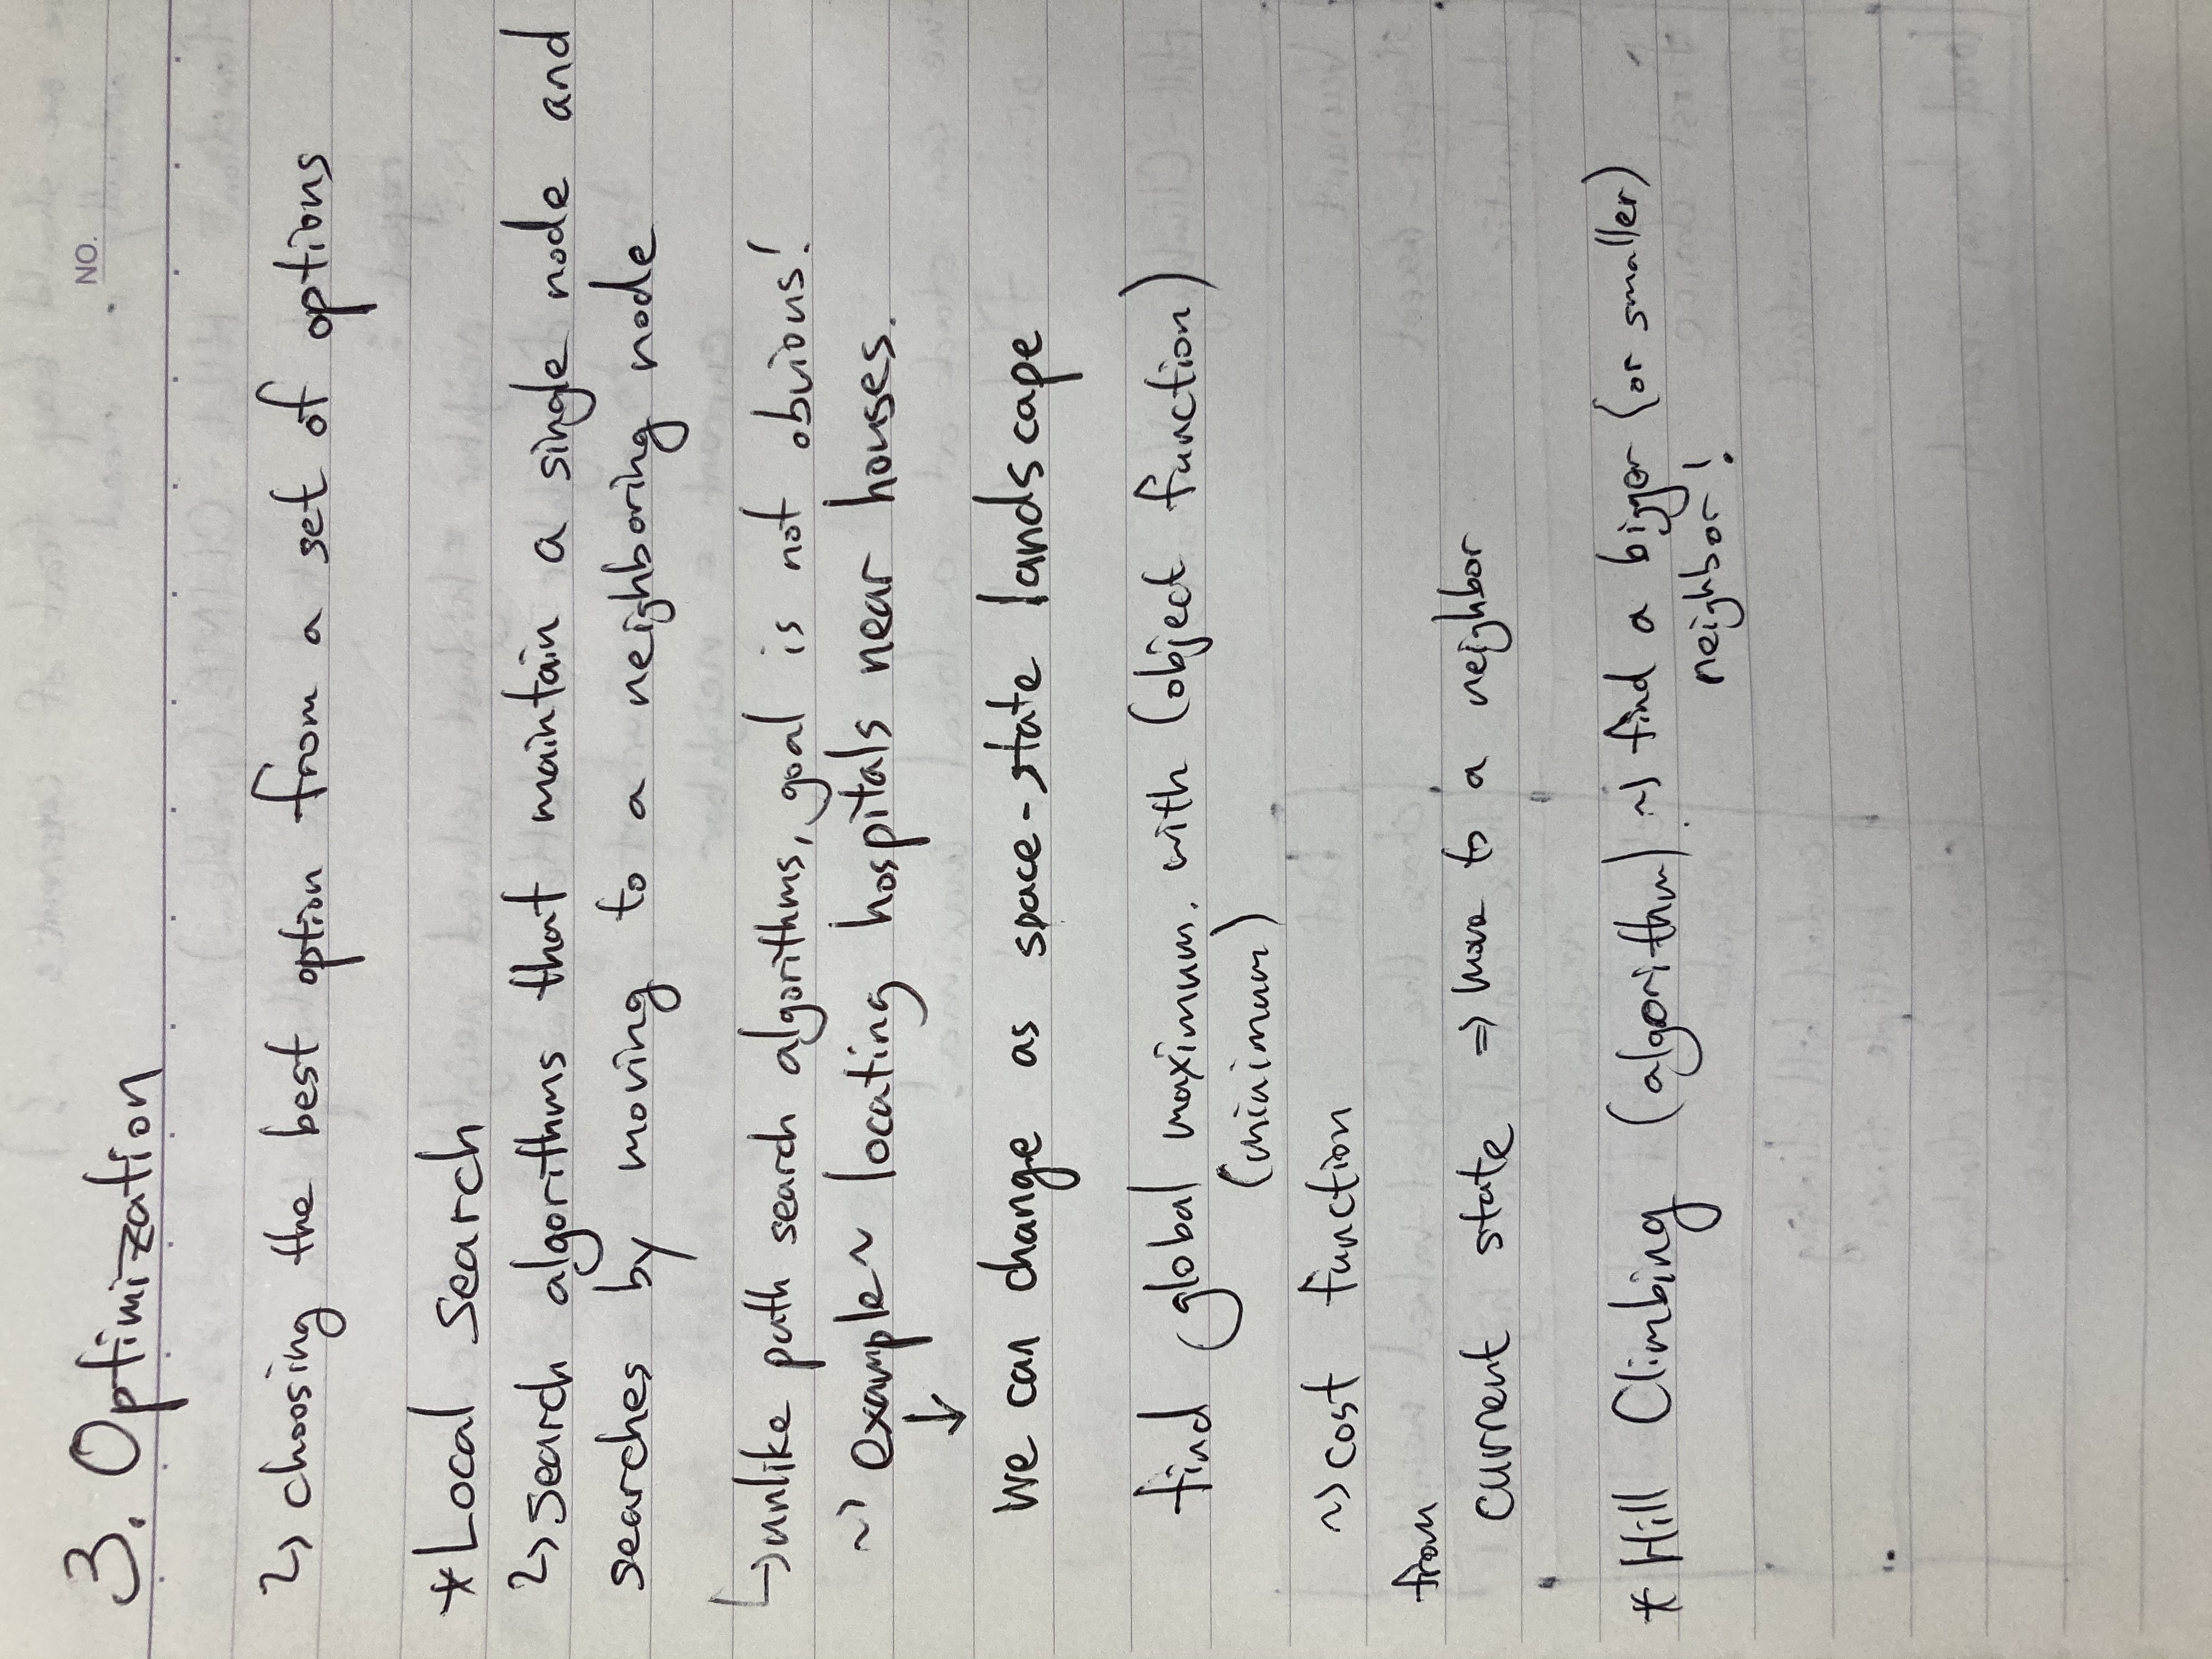 NO.
3. Optimization
↝ choosing the best option from a set of options
*Local Search
↝ search algorithms that maintain a single node and
searches by moving to a neighboring node
↳ unlike path search algorithms, goal is not obvious!
↝ example ~ locating hospitals near houses.
↓
we can change as space-state landscape
find global maximum. with (object function)
(minimum)
↝ cost function
from
current state ⇒ move to a neighbor
* Hill Climbing (algorithm). ↝ find a bigger (or smaller)
neighbor!